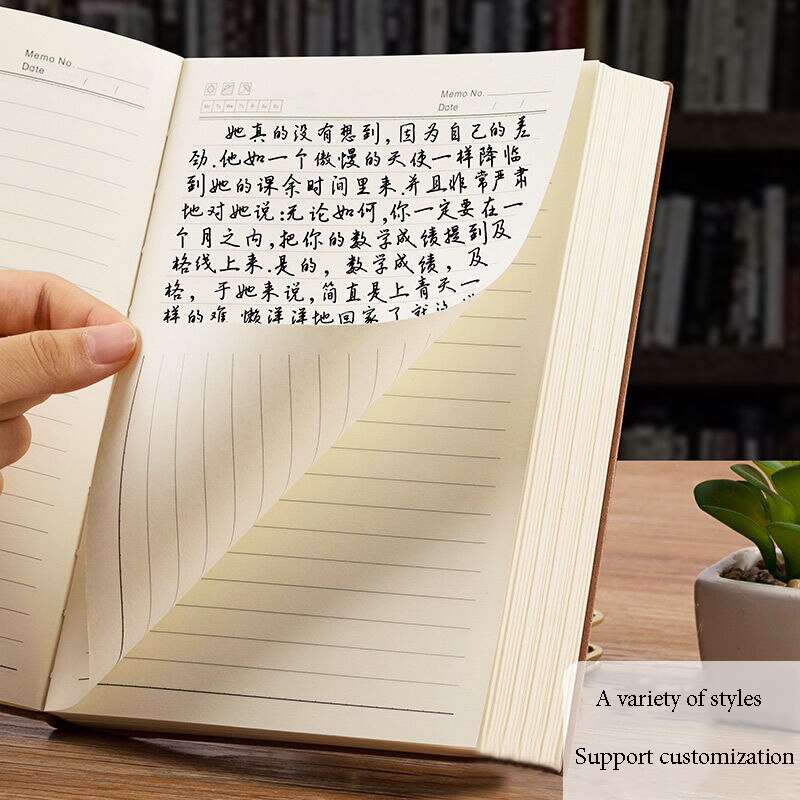 Memo No.
Date / /
Memo No.
Date / /
Mo Tu We Th Fr Sa Su
她真的没有想到,因为自己的差
劲.他如一个傲慢的天使一样降临
到她的课余时间里来.并且非常严肃
地对她说:无论如何,你一定要在一
个月之内,把你的数学成绩提到及
格线上来.是的,数学成绩,及
格,于她来说,简直是上青天一
样的难 懒洋洋地回家了
A variety of styles
Support customization